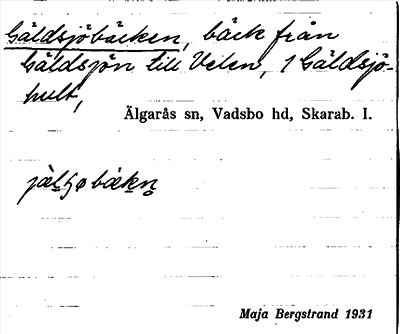 Gäldsjöbäcken, bäck från
Gäldsjön till Velen, 1 Gäldsjö-
hult,
Älgarås sn, Vadsbo hd, Skarab. l.
Maja Bergstrand 1931